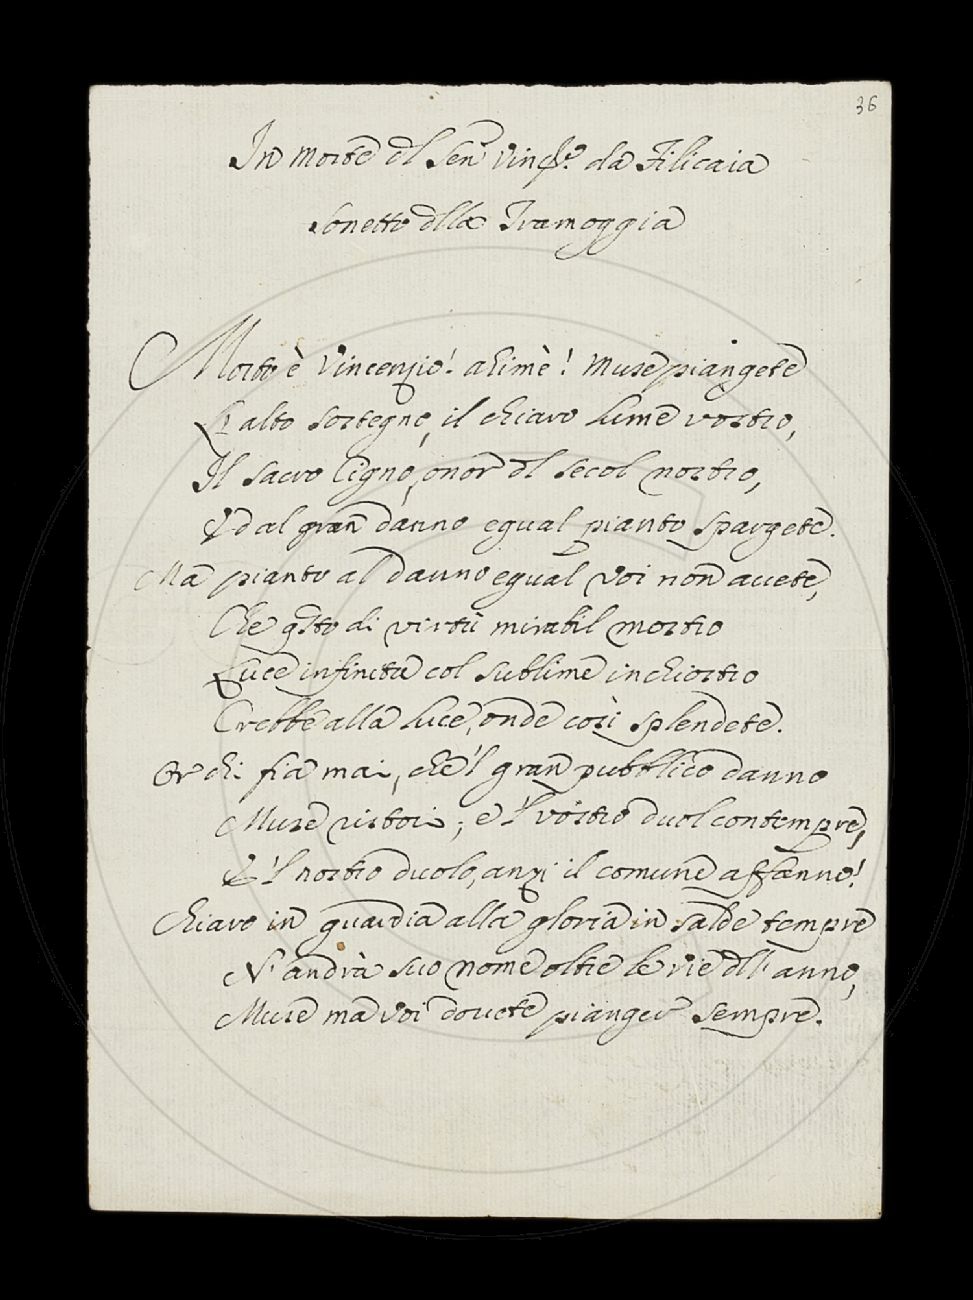 36
In morte dl Sen.r Vinc.o da Filicaia
Sonetto dlla Tramoggia
Morto è Vincenzio! ahimè! Muse piangete
L'alto sostegno, il chiaro lume vostro,
Il sacro Cigno, onor dl secol nostro,
E dal gran danno egual pianto spargete.
Ma pianto al danno egual voi non avete,
Che qsto di virtù mirabil mostro
Luce infinita col sublime inchiostro
Crebbe alla luce, onde così splendete.
Or chi fia mai, che'l gran pubblico danno
Muse ristori; e 'l vostro duol contempre,
E 'l nostro duolo, anzi il comune affanno!
Chiaro in guardia alla gloria in salde tempre
N'andrà suo nome oltre le vie dll'anno,
Muse ma voi dovete pianger sempre.